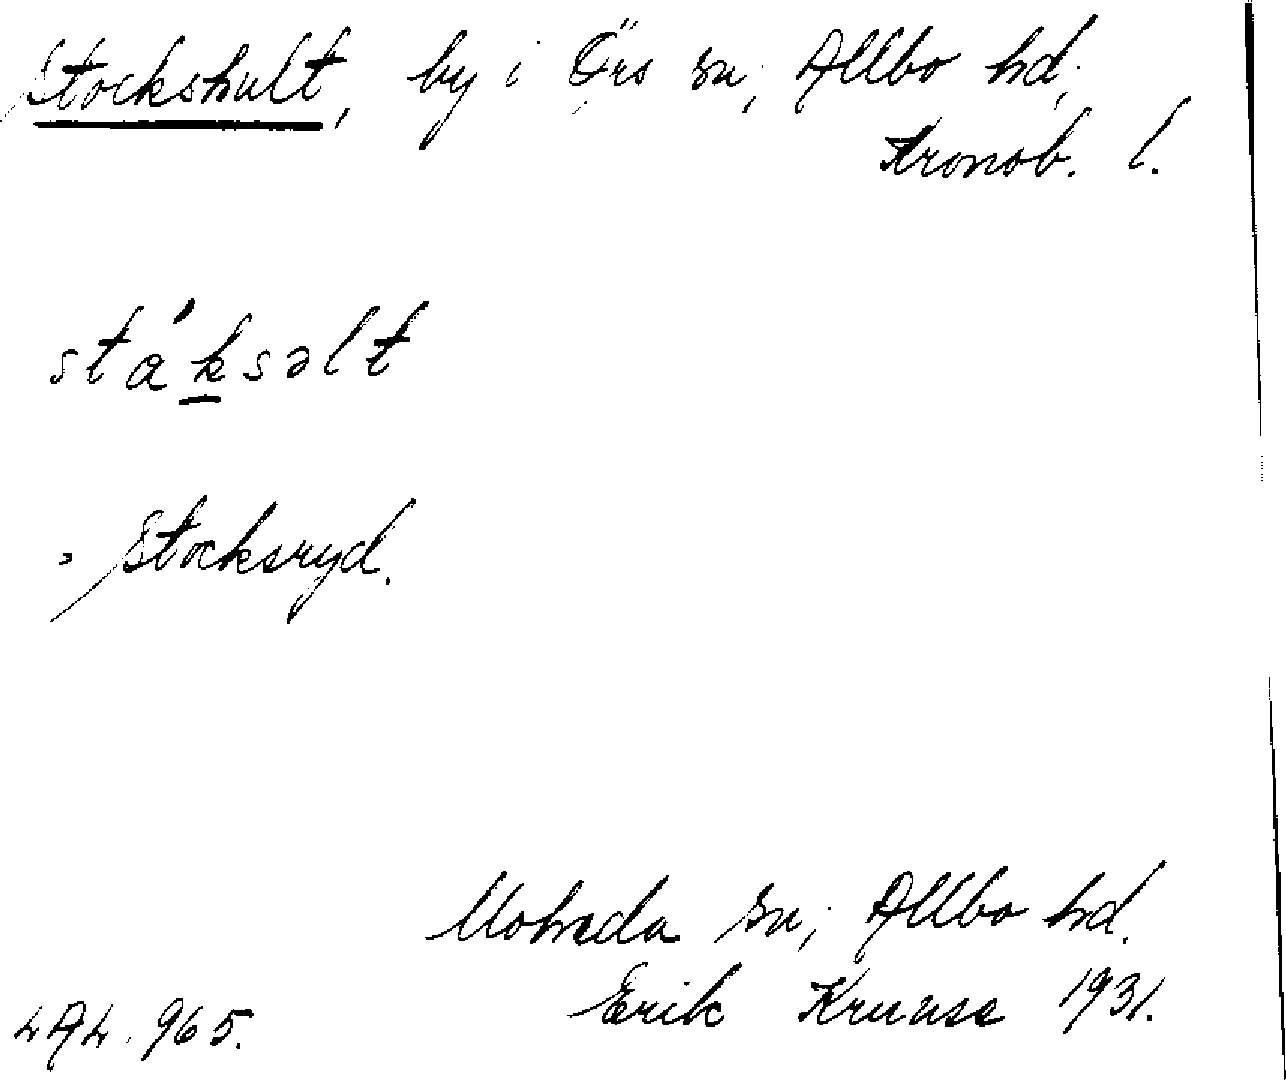 Stockshult, by i Örs sn; Allbo hd;
Kronob. l.
stáksəlt
, Stocksryd.
Moheda sn; Allbo hd.
Erik Kruuse 1931.
LAL. 965.